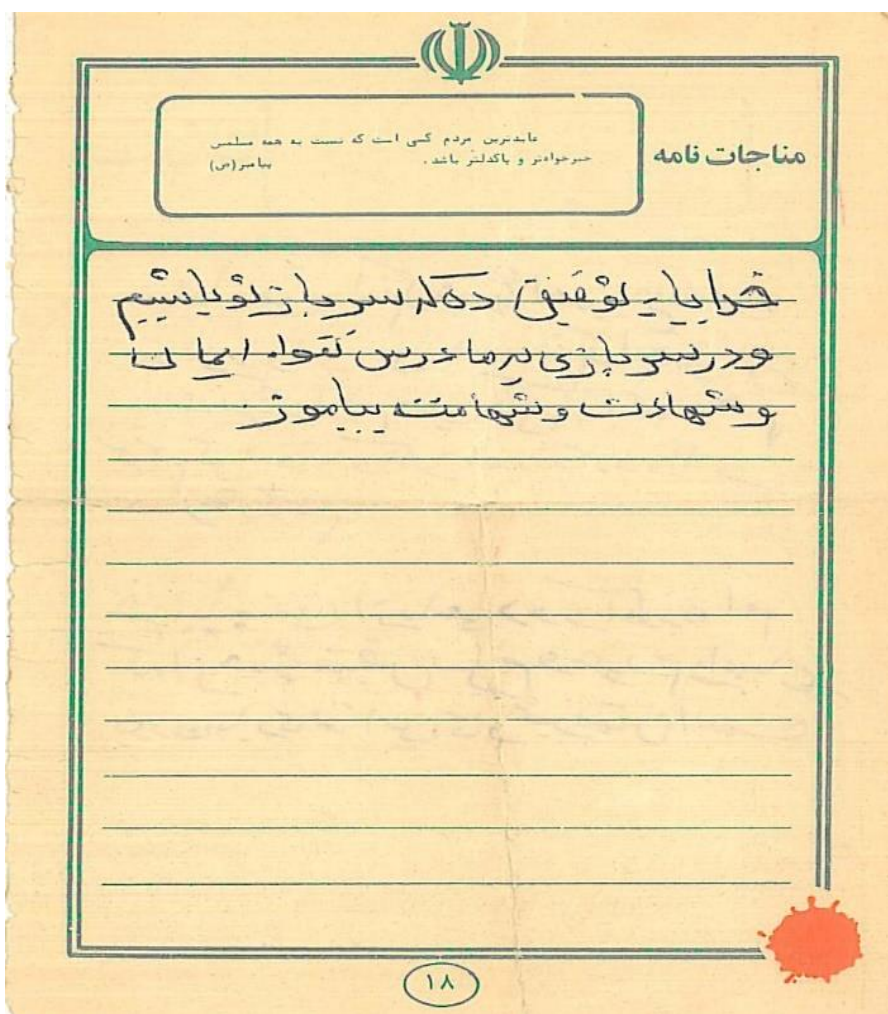 مناجات نامه
عابدترین مردم کسی است که نسبت به همه مسلمین
خیرخواه‌تر و پاکدلتر باشد. پیامبر(ص)
خدایا، توفیق ده که سرباز تو باشیم
و در سربازی به ما درس تقوا، ایمان
و شهادت و شهامت بیاموز.
۱۸